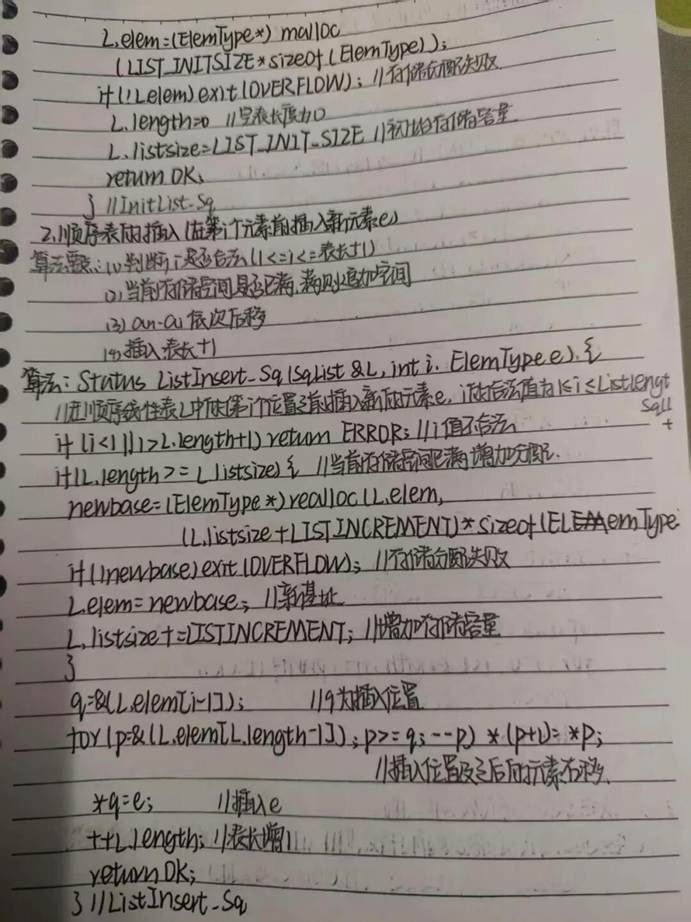 L.elem=(ElemType*) malloc
(LIST_INITSIZE*sizeof(ElemType));
if(!L.elem)exit(OVERFLOW); //存储分配失败
L.length=0 //空表长度为0
L.listsize=LIST_INIT_SIZE //初始存储容量
return OK;
} //InitList_Sq
2.顺序表的插入(在第i个元素前插入新元素e)
算法思想:(1)判断i是否合法(1<=i<=表长+1)
(2)当前存储空间是否已满,满则增加空间
(3) an-ai 依次后移
(4)插入 表长+1
算法: Status ListInsert_Sq(SqList &L,int i, ElemType e).{
//在顺序线性表L中的第i个位置之前插入新的元素e, i的合法值为1≤i≤Listlengt
Sq(L
+
if (i<1||i>L.length+1)return ERROR; //i值不合法
if(L.length>=L listsize){ //当前存储空间已满,增加分配.
newbase=(ElemType*)realloc(L.elem,
(L.listsize+LISTINCREMENT)*sizeof(ElemType
if(!newbase)exit(OVERFLOW); //存储分配失败
L.elem=newbase; //新基址
L.listsize+=LISTINCREMENT; //增加存储容量
}
q=&(L.elem[i-1]); //q为插入位置
for(p=&(L.elem[L.length-1]);p>=q;--p) *(p+1)=*p;
//插入位置及之后的元素右移.
*q=e; //插入e
++L.length; //表长增1
return OK;
} //ListInsert_Sq